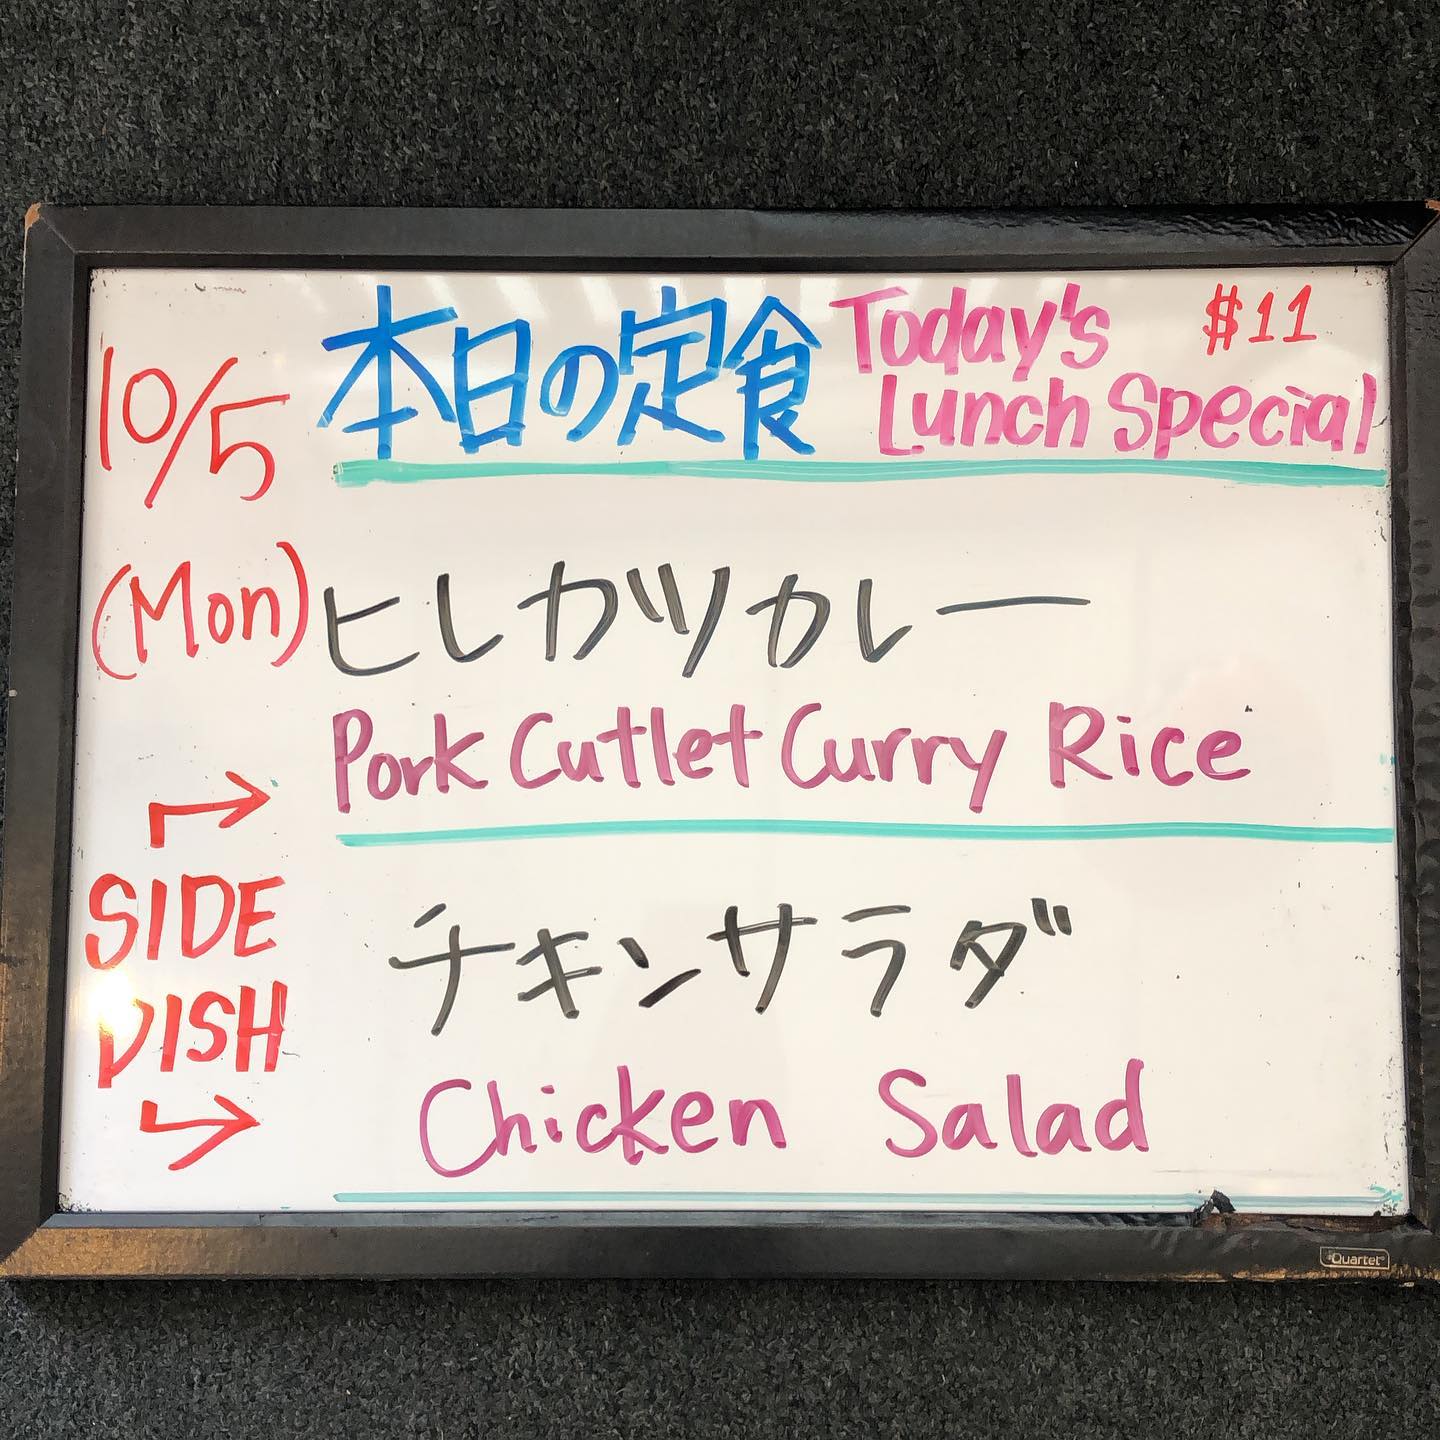 10/5
(Mon)
本日の定食
Today's
Lunch Special
$11
ヒレカツカレー
Pork Cutlet Curry Rice
SIDE
DISH
チキンサラダ
Chicken Salad
Quartet